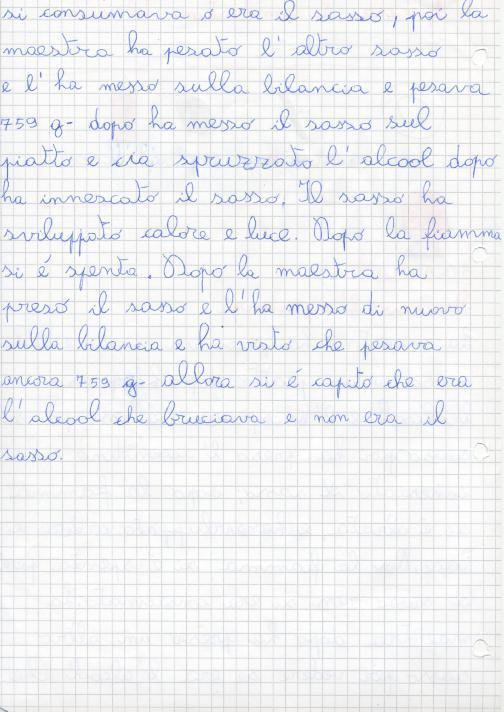 si consumava o era il sasso, poi la
maestra ha pesato l'altro sasso
e l'ha messo sulla bilancia e pesava
759 g- dopo ha messo il sasso sul
piatto e cia spruzzato l'alcool dopo
ha innescato il sasso. Il sasso ha
sviluppato calore e luce. Dopo la fiamma
si é spenta. Dopo la maestra ha
preso il sasso e l'ha messo di nuovo
sulla bilancia e ha visto che pesava
ancora 759 g- allora si é capito che era
l'alcool che bruciava e non era il
sasso.